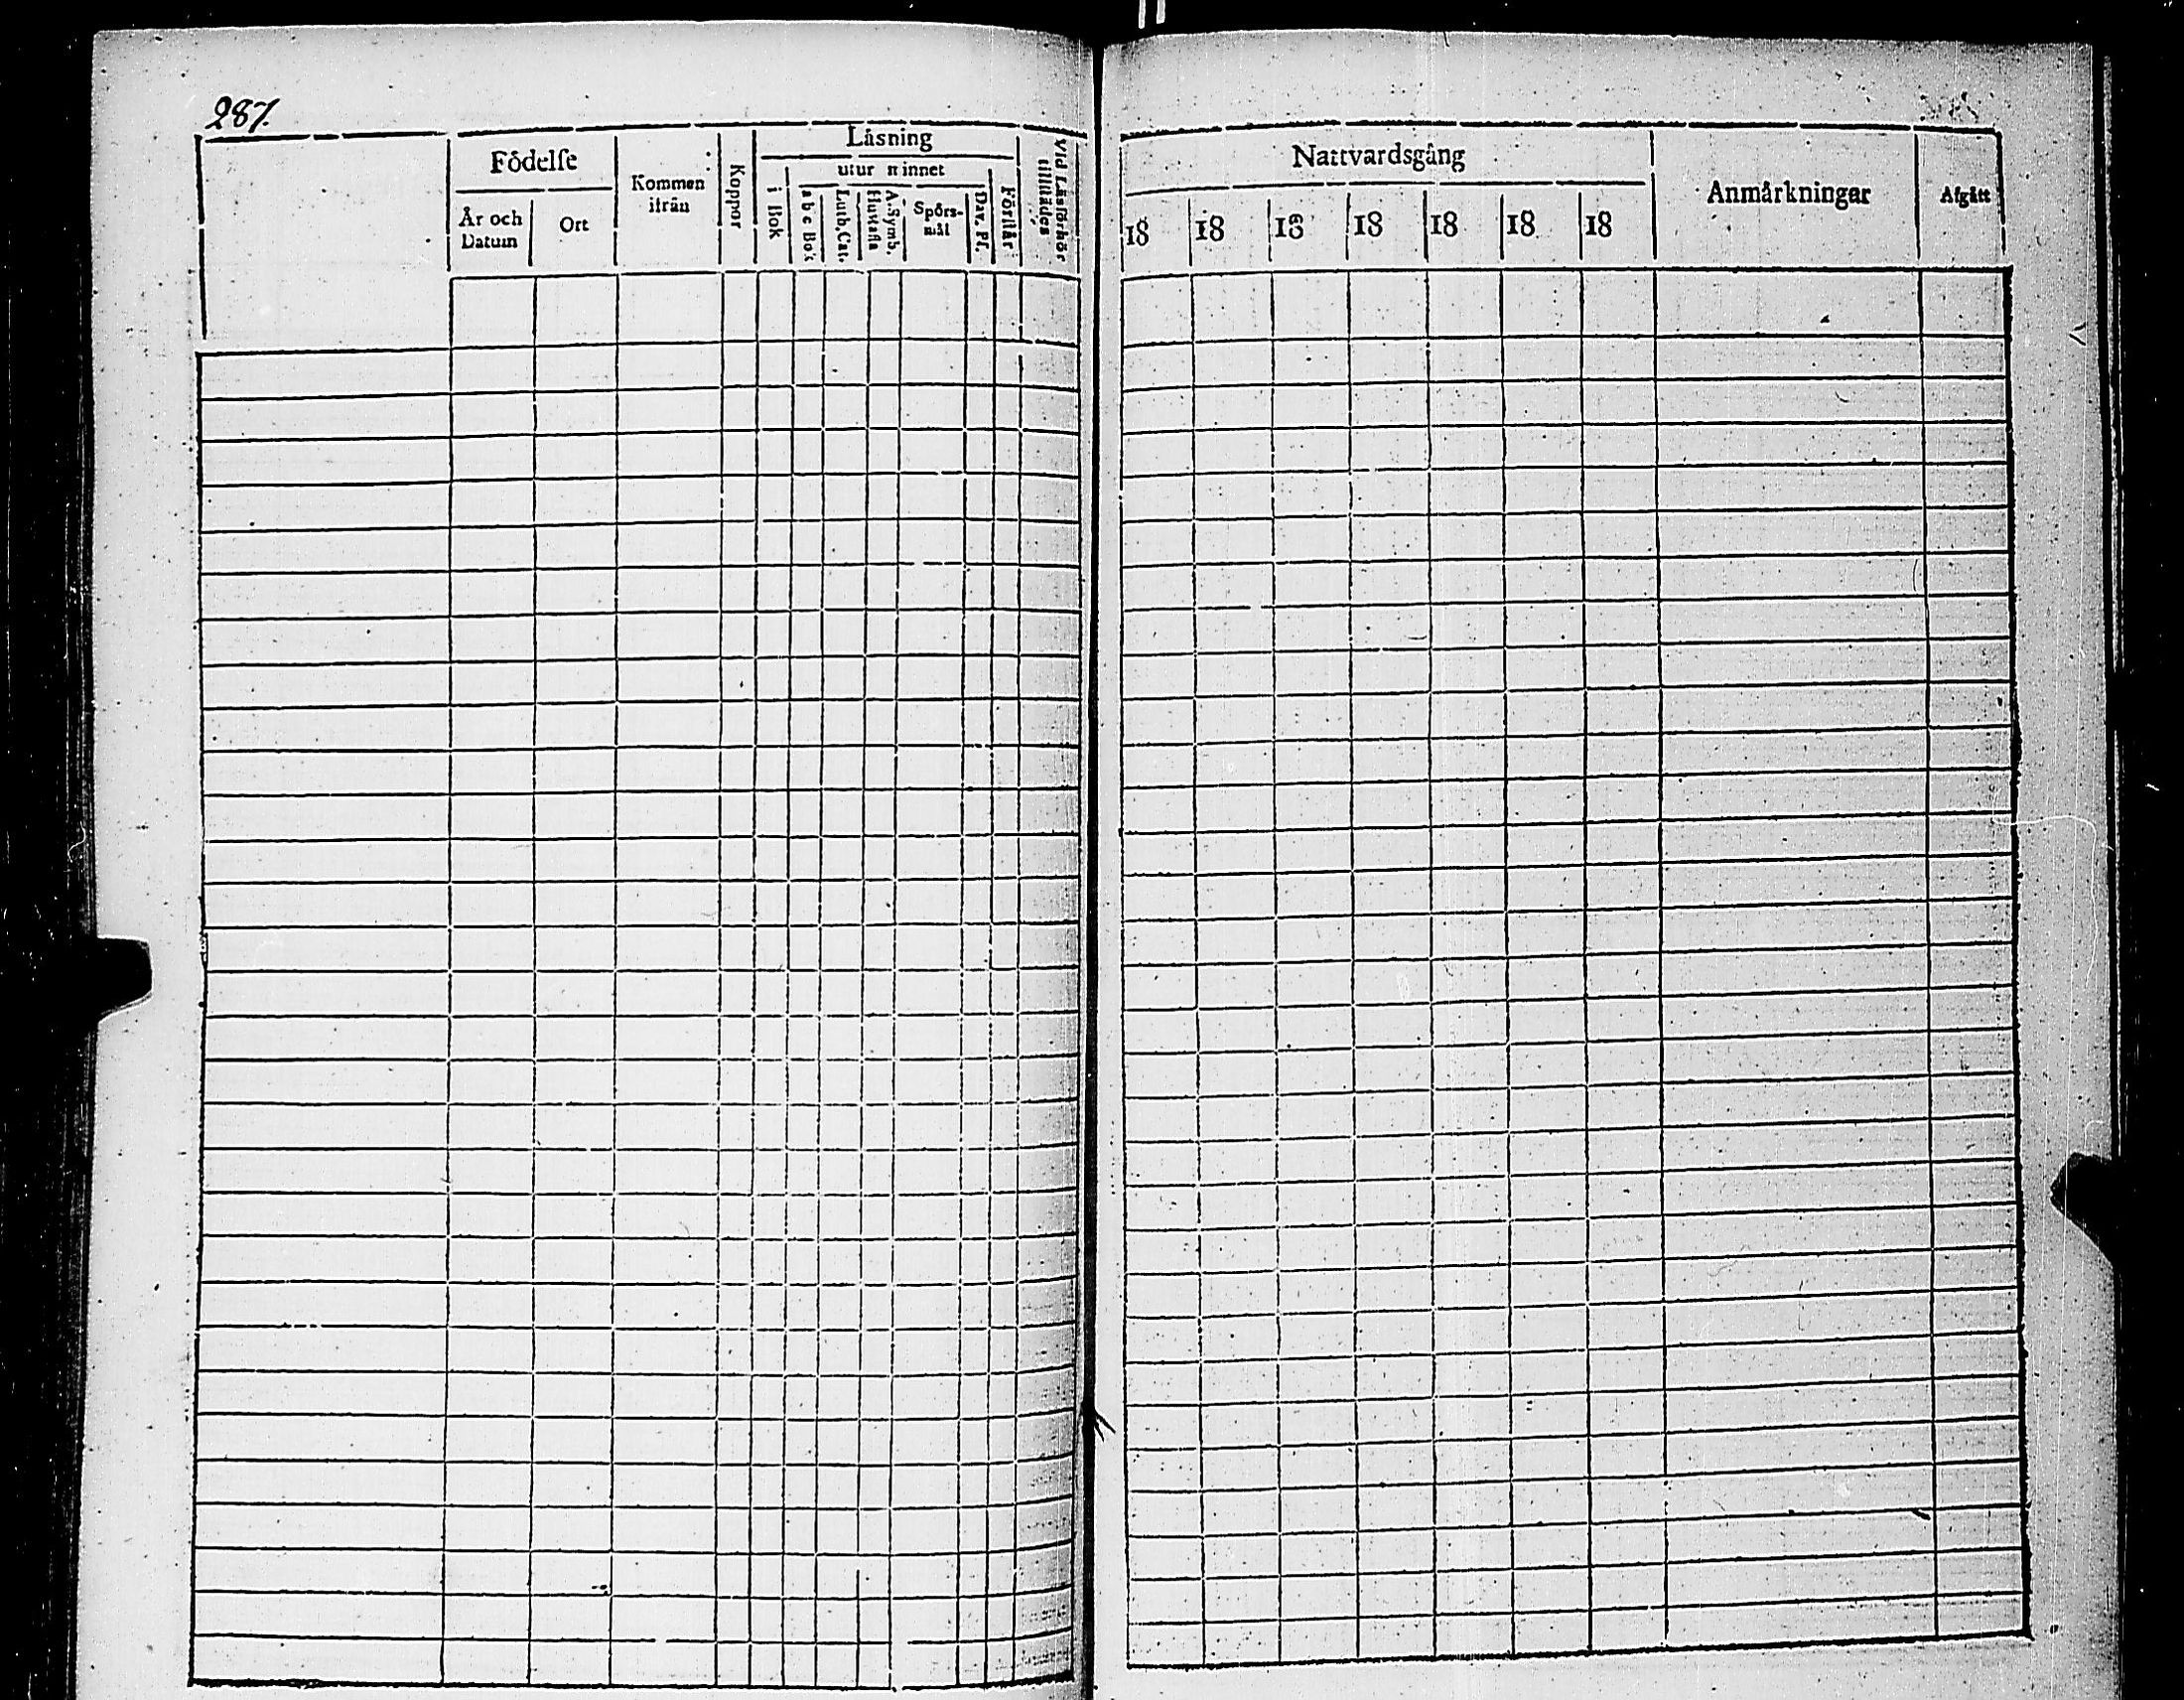 287.
Födelse
År och Datum
Ort
Kommen ifrån
Koppor
Läsning
i Bok
utur minnet
a b c Bok
Luth. Cat.
A. Symb. Hustafla
Spörsmål
Dav. Ps.
Förstår
Vid Läsförhör tillstädes
Nattvardsgång
18 18 18 18 18 18 18
Anmärkningar
Afgått